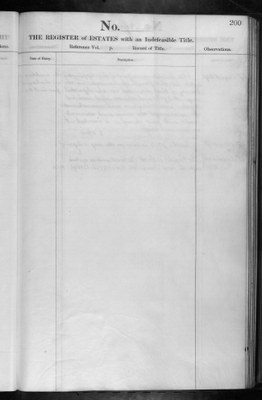 200
No.
THE REGISTER of ESTATES with an Indefeasible Title.
Reference Vol. p. Record of Title.
Observations.
Date of Entry.
Description.